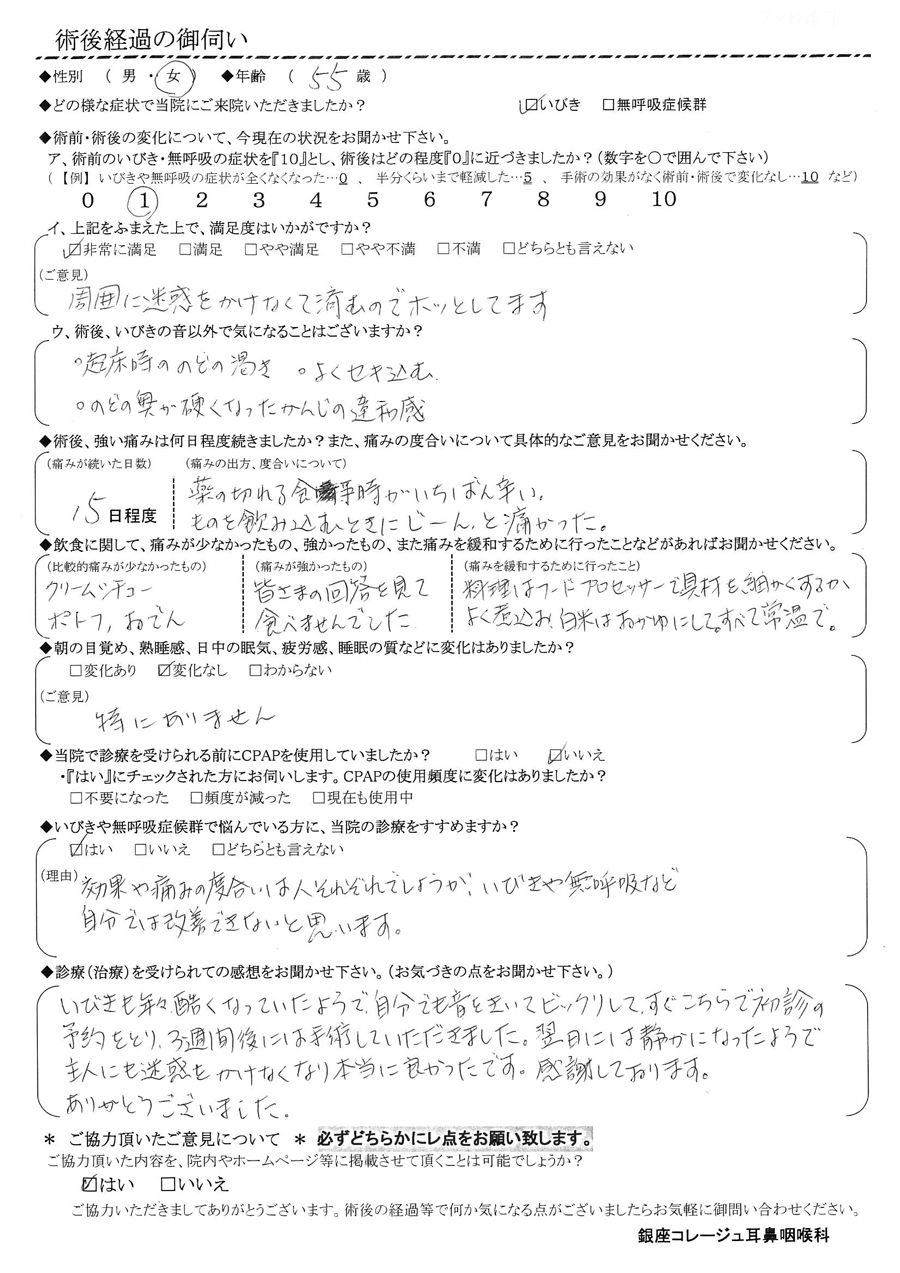 術後経過の御伺い
◆性別 ( 男 ・ 女 ) ◆年齢 ( 55 歳 )
◆どの様な症状で当院にご来院いただきましたか? ☑いびき □無呼吸症候群
◆術前・術後の変化について、今現在の状況をお聞かせ下さい。
ア、術前のいびき・無呼吸の症状を『10』とし、術後はどの程度『0』に近づきましたか?(数字を〇で囲んで下さい)
(【例】いびきや無呼吸の症状が全くなくなった…0 、 半分くらいまで軽減した…5 、 手術の効果がなく術前・術後で変化なし…10 など)
0 1 2 3 4 5 6 7 8 9 10
イ、上記をふまえた上で、満足度はいかがですか?
☑非常に満足 □満足 □やや満足 □やや不満 □不満 □どちらとも言えない
(ご意見)
周囲に迷惑をかけなくて済むのでホッとしてます
ウ、術後、いびきの音以外で気になることはございますか?
○起床時ののどの渇き ○よくセキ込む
○のどの奥が硬くなったかんじの違和感
◆術後、強い痛みは何日程度続きましたか?また、痛みの度合いについて具体的なご意見をお聞かせください。
(痛みが続いた日数) (痛みの出方、度合いについて)
15 日程度 薬の切れる食事時がいちばん辛い。
ものを飲み込むときにじーん、と痛かった。
◆飲食に関して、痛みが少なかったもの、強かったもの、また痛みを緩和するために行ったことなどがあればお聞かせください。
(比較的痛みが少なかったもの) (痛みが強かったもの) (痛みを緩和するために行ったこと)
クリームシチュー 皆さまの回答を見て 料理はフードプロセッサーで具材を細かくするか
ポトフ、おでん 食べませんでした よく煮込み、白米はおかゆにして。すべて常温で。
◆朝の目覚め、熟睡感、日中の眠気、疲労感、睡眠の質などに変化はありましたか?
□変化あり ☑変化なし □わからない
(ご意見)
特にありません
◆当院で診療を受けられる前にCPAPを使用していましたか? □はい ☑いいえ
・『はい』にチェックされた方にお伺いします。CPAPの使用頻度に変化はありましたか?
□不要になった □頻度が減った □現在も使用中
◆いびきや無呼吸症候群で悩んでいる方に、当院の診療をすすめますか?
☑はい □いいえ □どちらとも言えない
(理由) 効果や痛みの度合いは人それぞれでしょうが、いびきや無呼吸など
自分では改善できないと思います。
◆診療(治療)を受けられての感想をお聞かせ下さい。(お気づきの点をお聞かせ下さい。)
いびきも年々酷くなっていたようで、自分でも音を聞いてビックリして、すぐこちらで初診の
予約をとり、3週間後には手術していただきました。翌日には静かになったようで
主人にも迷惑をかけなくなり本当に良かったです。感謝しております。
ありがとうございました。
* ご協力頂いたご意見について * 必ずどちらかにレ点をお願い致します。
ご協力頂いた内容を、院内やホームページ等に掲載させて頂くことは可能でしょうか?
☑はい □いいえ
ご協力いただきましてありがとうございます。術後の経過等で何か気になる点がございましたらお気軽に御問い合わせください。
銀座コレージュ耳鼻咽喉科